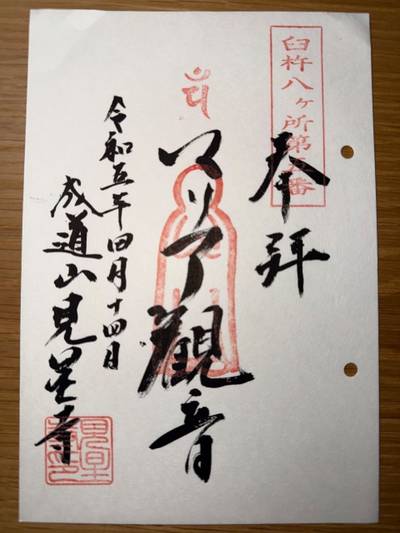 臼杵八ヶ所第五番
奉拝
マリア観音
令和五年四月十四日
成道山見星寺